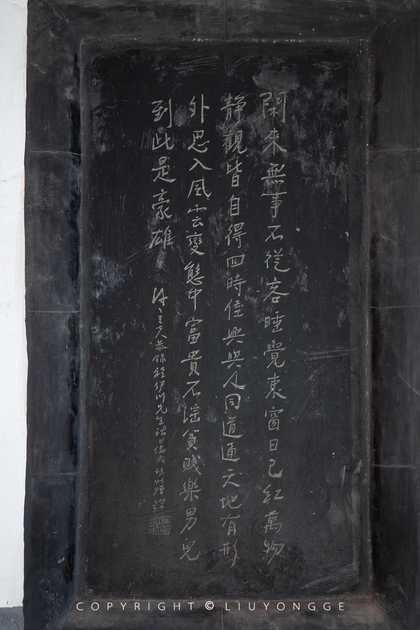 閑來無事不從容睡覺東窗日已紅萬物
靜觀皆自得四時佳興與人同道通天地有形
外思入風雲變態中富貴不淫貧賤樂男兒
到此是豪雄
程伊川先生
COPYRIGHT © LIUYONGGE